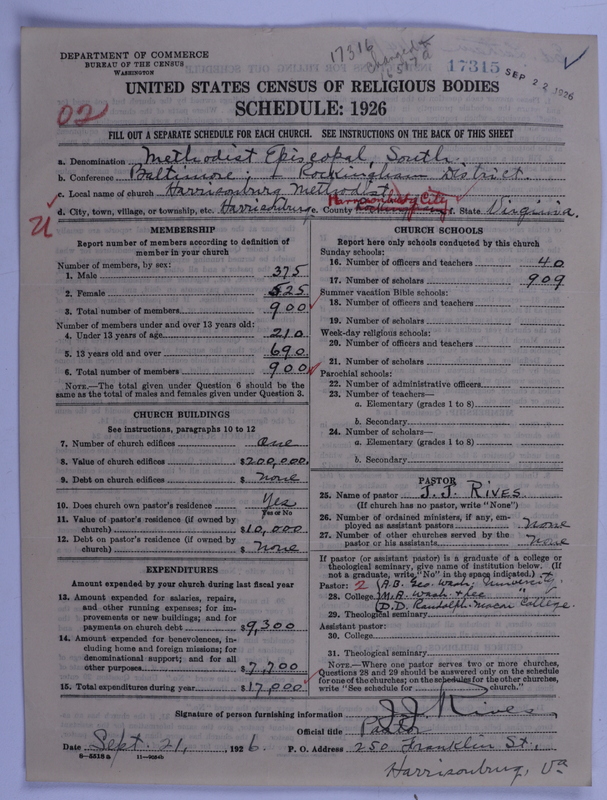 17316
Changed
17315
SEP 22 1926
DEPARTMENT OF COMMERCE
BUREAU OF THE CENSUS
WASHINGTON
UNITED STATES CENSUS OF RELIGIOUS BODIES
SCHEDULE: 1926
02
FILL OUT A SEPARATE SCHEDULE FOR EACH CHURCH. SEE INSTRUCTIONS ON THE BACK OF THIS SHEET
a. Denomination Methodist Episcopal, South.
b. Conference Baltimore; + Rockingham District
c. Local name of church Harrisonburg Methodist
Harrisonburg City
d. City, town, village, or township, etc. Harrisonburg e. County Rockingham f. State Virginia.
U
MEMBERSHIP
Report number of members according to definition of member in your church
Number of members, by sex:
1. Male 375
2. Female 525
3. Total number of members 900
Number of members under and over 13 years old:
4. Under 13 years of age 210
5. 13 years old and over 690
6. Total number of members 900
NOTE.—The total given under Question 6 should be the same as the total of males and females given under Question 3.
CHURCH BUILDINGS
See instructions, paragraphs 10 to 12
7. Number of church edifices One
8. Value of church edifices $200,000.
9. Debt on church edifices $ None
10. Does church own pastor's residence Yes
Yes or No
11. Value of pastor's residence (if owned by church) $10,000
12. Debt on pastor's residence (if owned by church) $ None
EXPENDITURES
Amount expended by your church during last fiscal year
13. Amount expended for salaries, repairs, and other running expenses; for improvements or new buildings; and for payments on church debt $9,300
14. Amount expended for benevolences, including home and foreign missions; for denominational support; and for all other purposes $7,700
15. Total expenditures during year $17,000
CHURCH SCHOOLS
Report here only schools conducted by this church
Sunday schools:
16. Number of officers and teachers 40
17. Number of scholars 909
Summer vacation Bible schools:
18. Number of officers and teachers
19. Number of scholars
Week-day religious schools:
20. Number of officers and teachers
21. Number of scholars
Parochial schools:
22. Number of administrative officers
23. Number of teachers—
a. Elementary (grades 1 to 8)
b. Secondary
24. Number of scholars—
a. Elementary (grades 1 to 8)
b. Secondary
PASTOR
25. Name of pastor J. J. RIVES
(If church has no pastor, write "None")
26. Number of ordained ministers, if any, employed as assistant pastors None
27. Number of other churches served by the pastor or his assistants None
If pastor (or assistant pastor) is a graduate of a college or theological seminary, give name of institution below. (If not a graduate, write "No" in the space indicated.)
Pastor: 2 (A.B. Geo. Wash. University
28. College (M.A. Wash + Lee "
(D.D. Randolph-Macon College.
29. Theological seminary
Assistant pastor:
30. College
31. Theological seminary
NOTE.—Where one pastor serves two or more churches, Questions 28 and 29 should be answered only on the schedule for one of the churches; on the schedules for the other churches, write "See schedule for church."
Signature of person furnishing information J. J. Rives
Official title Pastor
Date Sept. 21, 1926. P. O. Address 250 Franklin St.,
Harrisonburg, Va